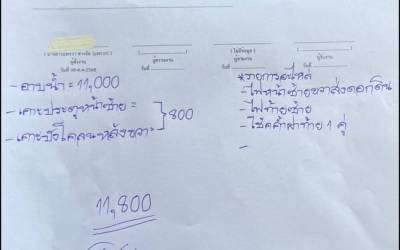 ผู้สั่งงาน
ผู้รายงาน
( ไม่มีข้อมูล )
ผู้รับงาน
วันที่
วันที่
วันที่
- อาบน้ำ = 11,000
- เคาะประตูหน้าซ้าย =
- เคาะบังโคลนหลังขวา =
} 800
11,800
* รายการอะไหล่
- ไฟหน้าซ้ายขวา
- ไฟท้ายซ้าย
- โช้คค้ำฝาท้าย 1 คู่
-